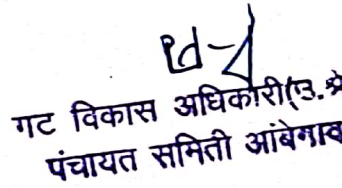 गट विकास अधिकारी(उ.श्रे
पंचायत समिती